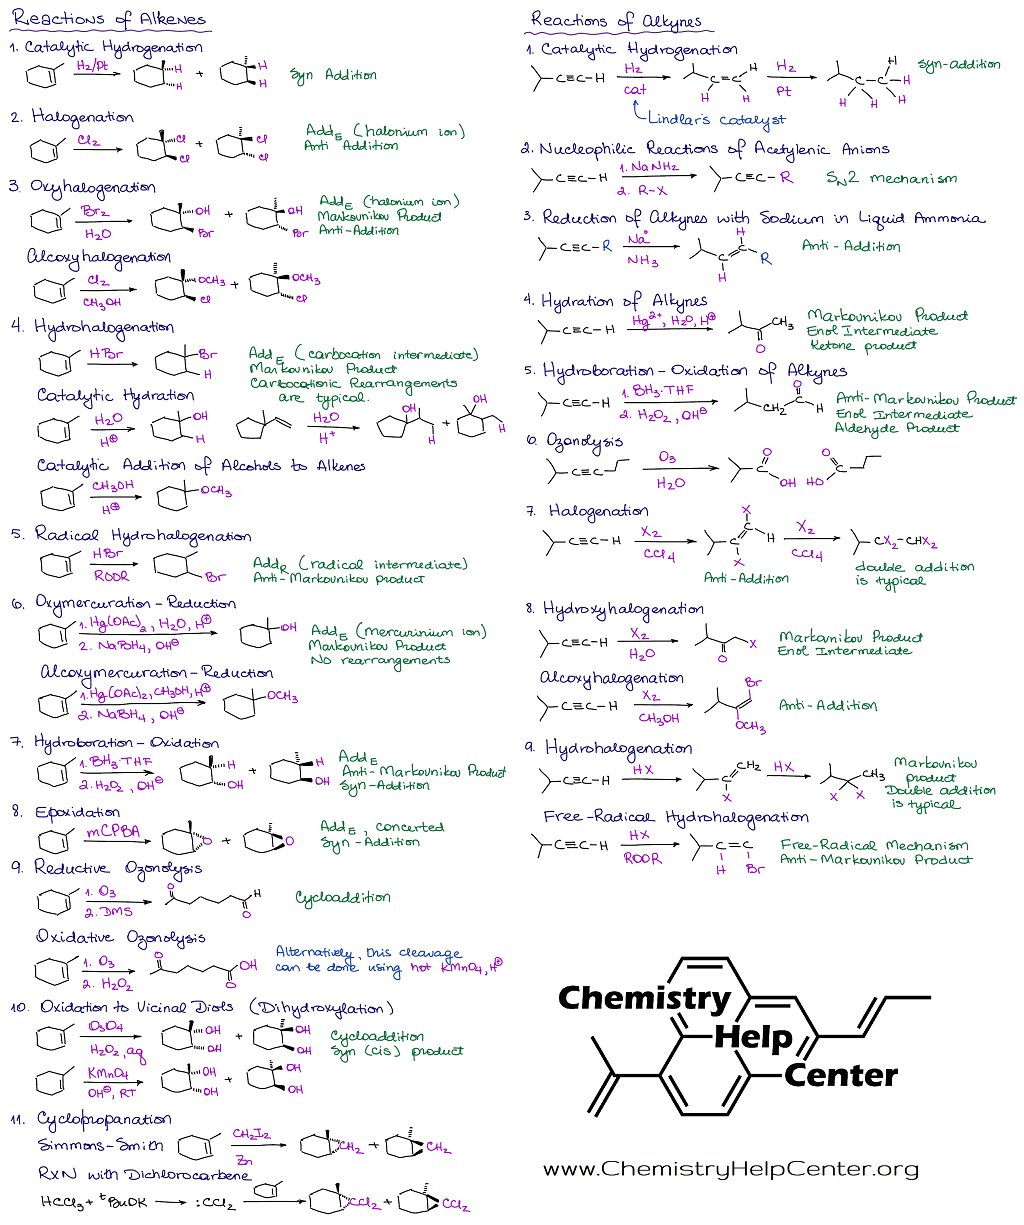 Reactions of Alkenes
1. Catalytic Hydrogenation
H2/Pt
H
H
+
H
H
Syn Addition
2. Halogenation
Cl2
Cl
Cl
+
Cl
Cl
AddE (halonium ion)
Anti Addition
3. Oxyhalogenation
Br2
H2O
OH
Br
+
OH
Br
AddE (halonium ion)
Markovnikov Product
Anti-Addition
Alcoxyhalogenation
Cl2
CH3OH
OCH3
Cl
+
OCH3
Cl
4. Hydrohalogenation
HBr
Br
H
AddE (carbocation intermediate)
Markovnikov Product
Carbocationic Rearrangements
are typical.
Catalytic Hydration
H2O
H⊕
OH
H
H2O
H+
OH
H
+
OH
H
Catalytic Addition of Alcohols to Alkenes
CH3OH
H⊕
OCH3
5. Radical Hydrohalogenation
HBr
ROOR
Br
AddR (radical intermediate)
Anti-Markovnikov product
6. Oxymercuration-Reduction
1. Hg(OAc)2, H2O, H⊕
2. NaBH4, OH⊖
OH
AddE (mercurinium ion)
Markovnikov Product
No rearrangements
Alcoxymercuration-Reduction
1. Hg(OAc)2, CH3OH, H⊕
2. NaBH4, OH⊖
OCH3
7. Hydroboration-Oxidation
1. BH3·THF
2. H2O2, OH⊖
H
OH
+
H
OH
AddE
Anti-Markovnikov Product
Syn-Addition
8. Epoxidation
mCPBA
O
+
O
AddE, concerted
Syn-Addition
9. Reductive Ozonolysis
1. O3
2. DMS
O
H
O
Cycloaddition
Oxidative Ozonolysis
1. O3
2. H2O2
O
OH
O
Alternatively, this cleavage
can be done using hot KMnO4, H⊕
10. Oxidation to Vicinal Diols (Dihydroxylation)
O3O4
H2O2, aq
OH
OH
+
OH
OH
Cycloaddition
Syn (cis) product
KMnO4
OH⊖, RT
OH
OH
+
OH
OH
11. Cyclopropanation
Simmons-Smith
CH2I2
Zn
CH2
+
CH2
RXN with Dichlorocarbene
HCCl3 + tBuOK
:CCl2
CCl2
+
CCl2
Reactions of Alkynes
1. Catalytic Hydrogenation
C≡C-H
H2
cat
C=C
H
H
H
H2
Pt
H
C-C-H
H
H
H
Syn-addition
Lindlar's catalyst
2. Nucleophilic Reactions of Acetylenic Anions
C≡C-H
1. NaNH2
2. R-X
C≡C-R
SN2 mechanism
3. Reduction of Alkynes with Sodium in Liquid Ammonia
C≡C-R
Na°
NH3
H
C=C
R
H
Anti-Addition
4. Hydration of Alkynes
C≡C-H
Hg2+, H2O, H⊕
CH3
O
Markovnikov Product
Enol Intermediate
Ketone product
5. Hydroboration-Oxidation of Alkynes
C≡C-H
1. BH3·THF
2. H2O2, OH⊖
O
CH2
C
H
Anti-Markovnikov Product
Enol Intermediate
Aldehyde Product
6. Ozonolysis
C≡C
O3
H2O
O
C
OH
O
C
HO
7. Halogenation
C≡C-H
X2
CCl4
X
C=C
H
X
X2
CCl4
CX2-CHX2
Anti-Addition
double addition
is typical
8. Hydroxyhalogenation
C≡C-H
X2
H2O
X
O
Markovnikov Product
Enol Intermediate
Alcoxyhalogenation
C≡C-H
X2
CH3OH
Br
OCH3
Anti-Addition
9. Hydrohalogenation
C≡C-H
HX
C=CH2
X
HX
CH3
X
X
Markovnikov
product
Double addition
is typical
Free-Radical Hydrohalogenation
C≡C-H
HX
ROOR
C=C
H
Br
Free-Radical Mechanism
Anti-Markovnikov Product
Chemistry
Help
Center
www.ChemistryHelpCenter.org